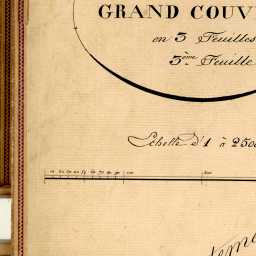 GRAND COUV
en 3 Feuilles
3ème Feuille
Echelle d'1 à 250